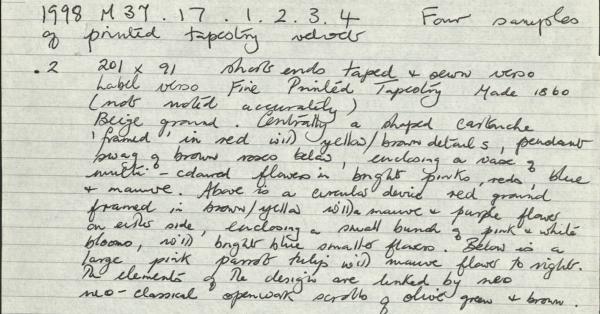 1998 M 37 . 17 . 1 . 2 . 3 . 4 Four samples
of printed tapestry velvets
.2 201 x 91 short ends taped & sewn verso
Label verso Fine Printed Tapestry Made 1860
(not noted accurately)
Beige ground. Centrally a shaped cartouche
'framed' in red with yellow/brown details, pendant
swag of brown roses below, enclosing a vase of
multi-coloured flowers in bright pinks, reds, blue
& mauve. Above is a circular device red ground
framed in brown/yellow with a mauve & purple flower
on either side, enclosing a small bunch of pink & white
blooms, with bright blue smaller flowers. Below is a
large pink parrot tulip with mauve flower to right.
The elements of the design are linked by neo
neo-classical openwork scrolls of olive green & brown.